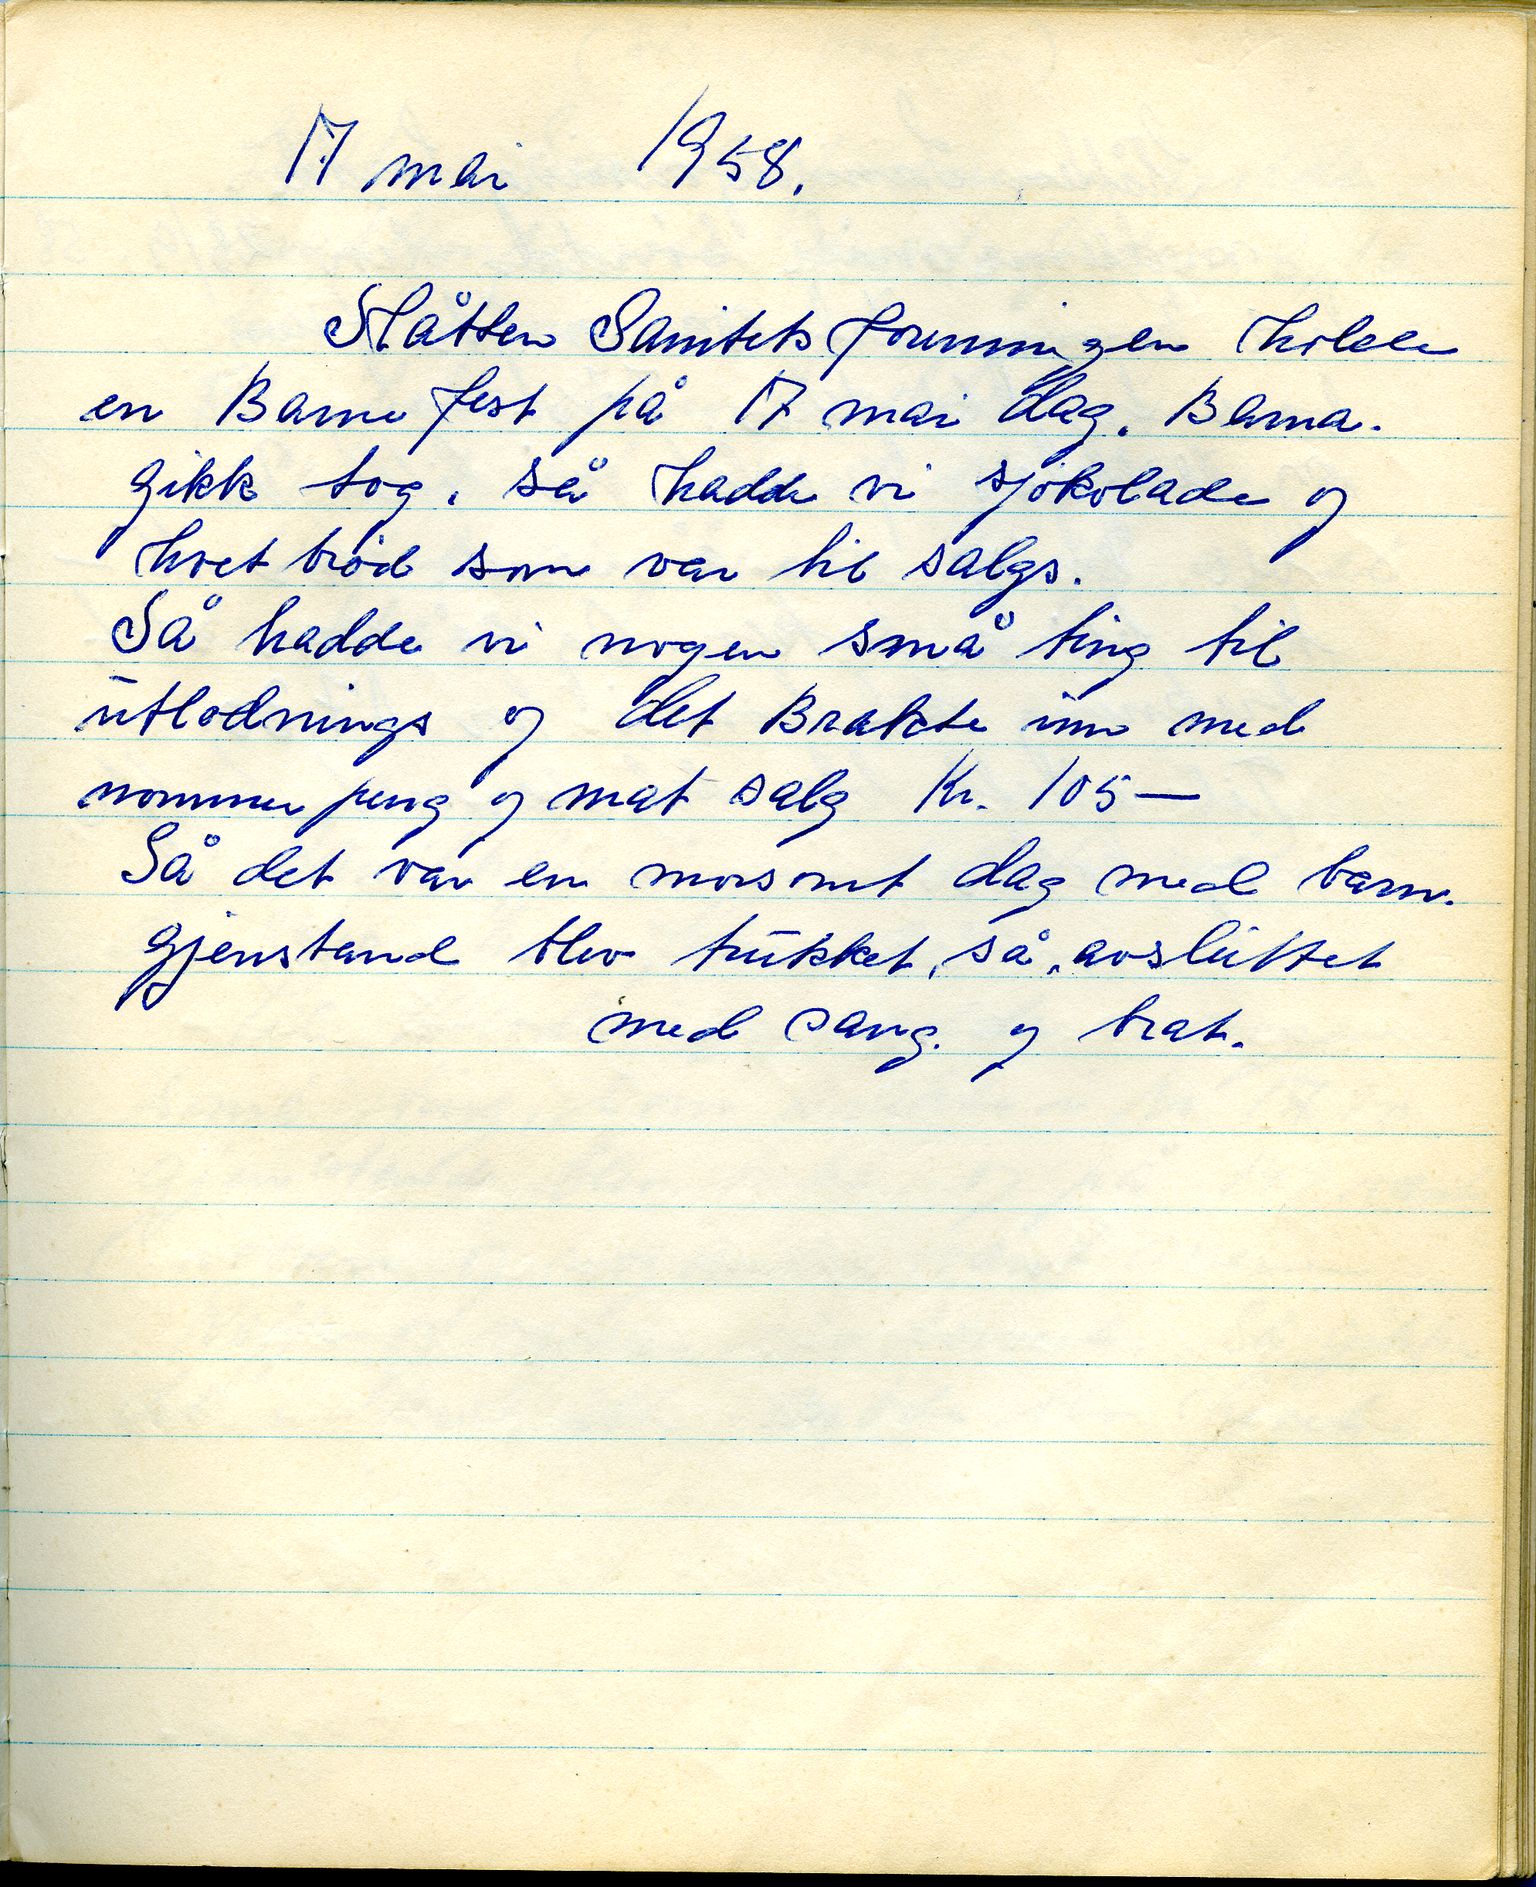 17 mai 1958.
Slåtten Sanitets foreningen holde
en Barne fest på 17 mai dag. Barna.
gikk tog. så hadde vi sjokolade og
hvet brød som var til salgs.
Så hadde vi nogen små ting til
utlodnings og det Brakte inn med
nommer peng og mat salg Kr. 105—
Så det var en morsomt dag med barn.
gjenstand blev trukket, så, avsluttet
med sang. og prat.